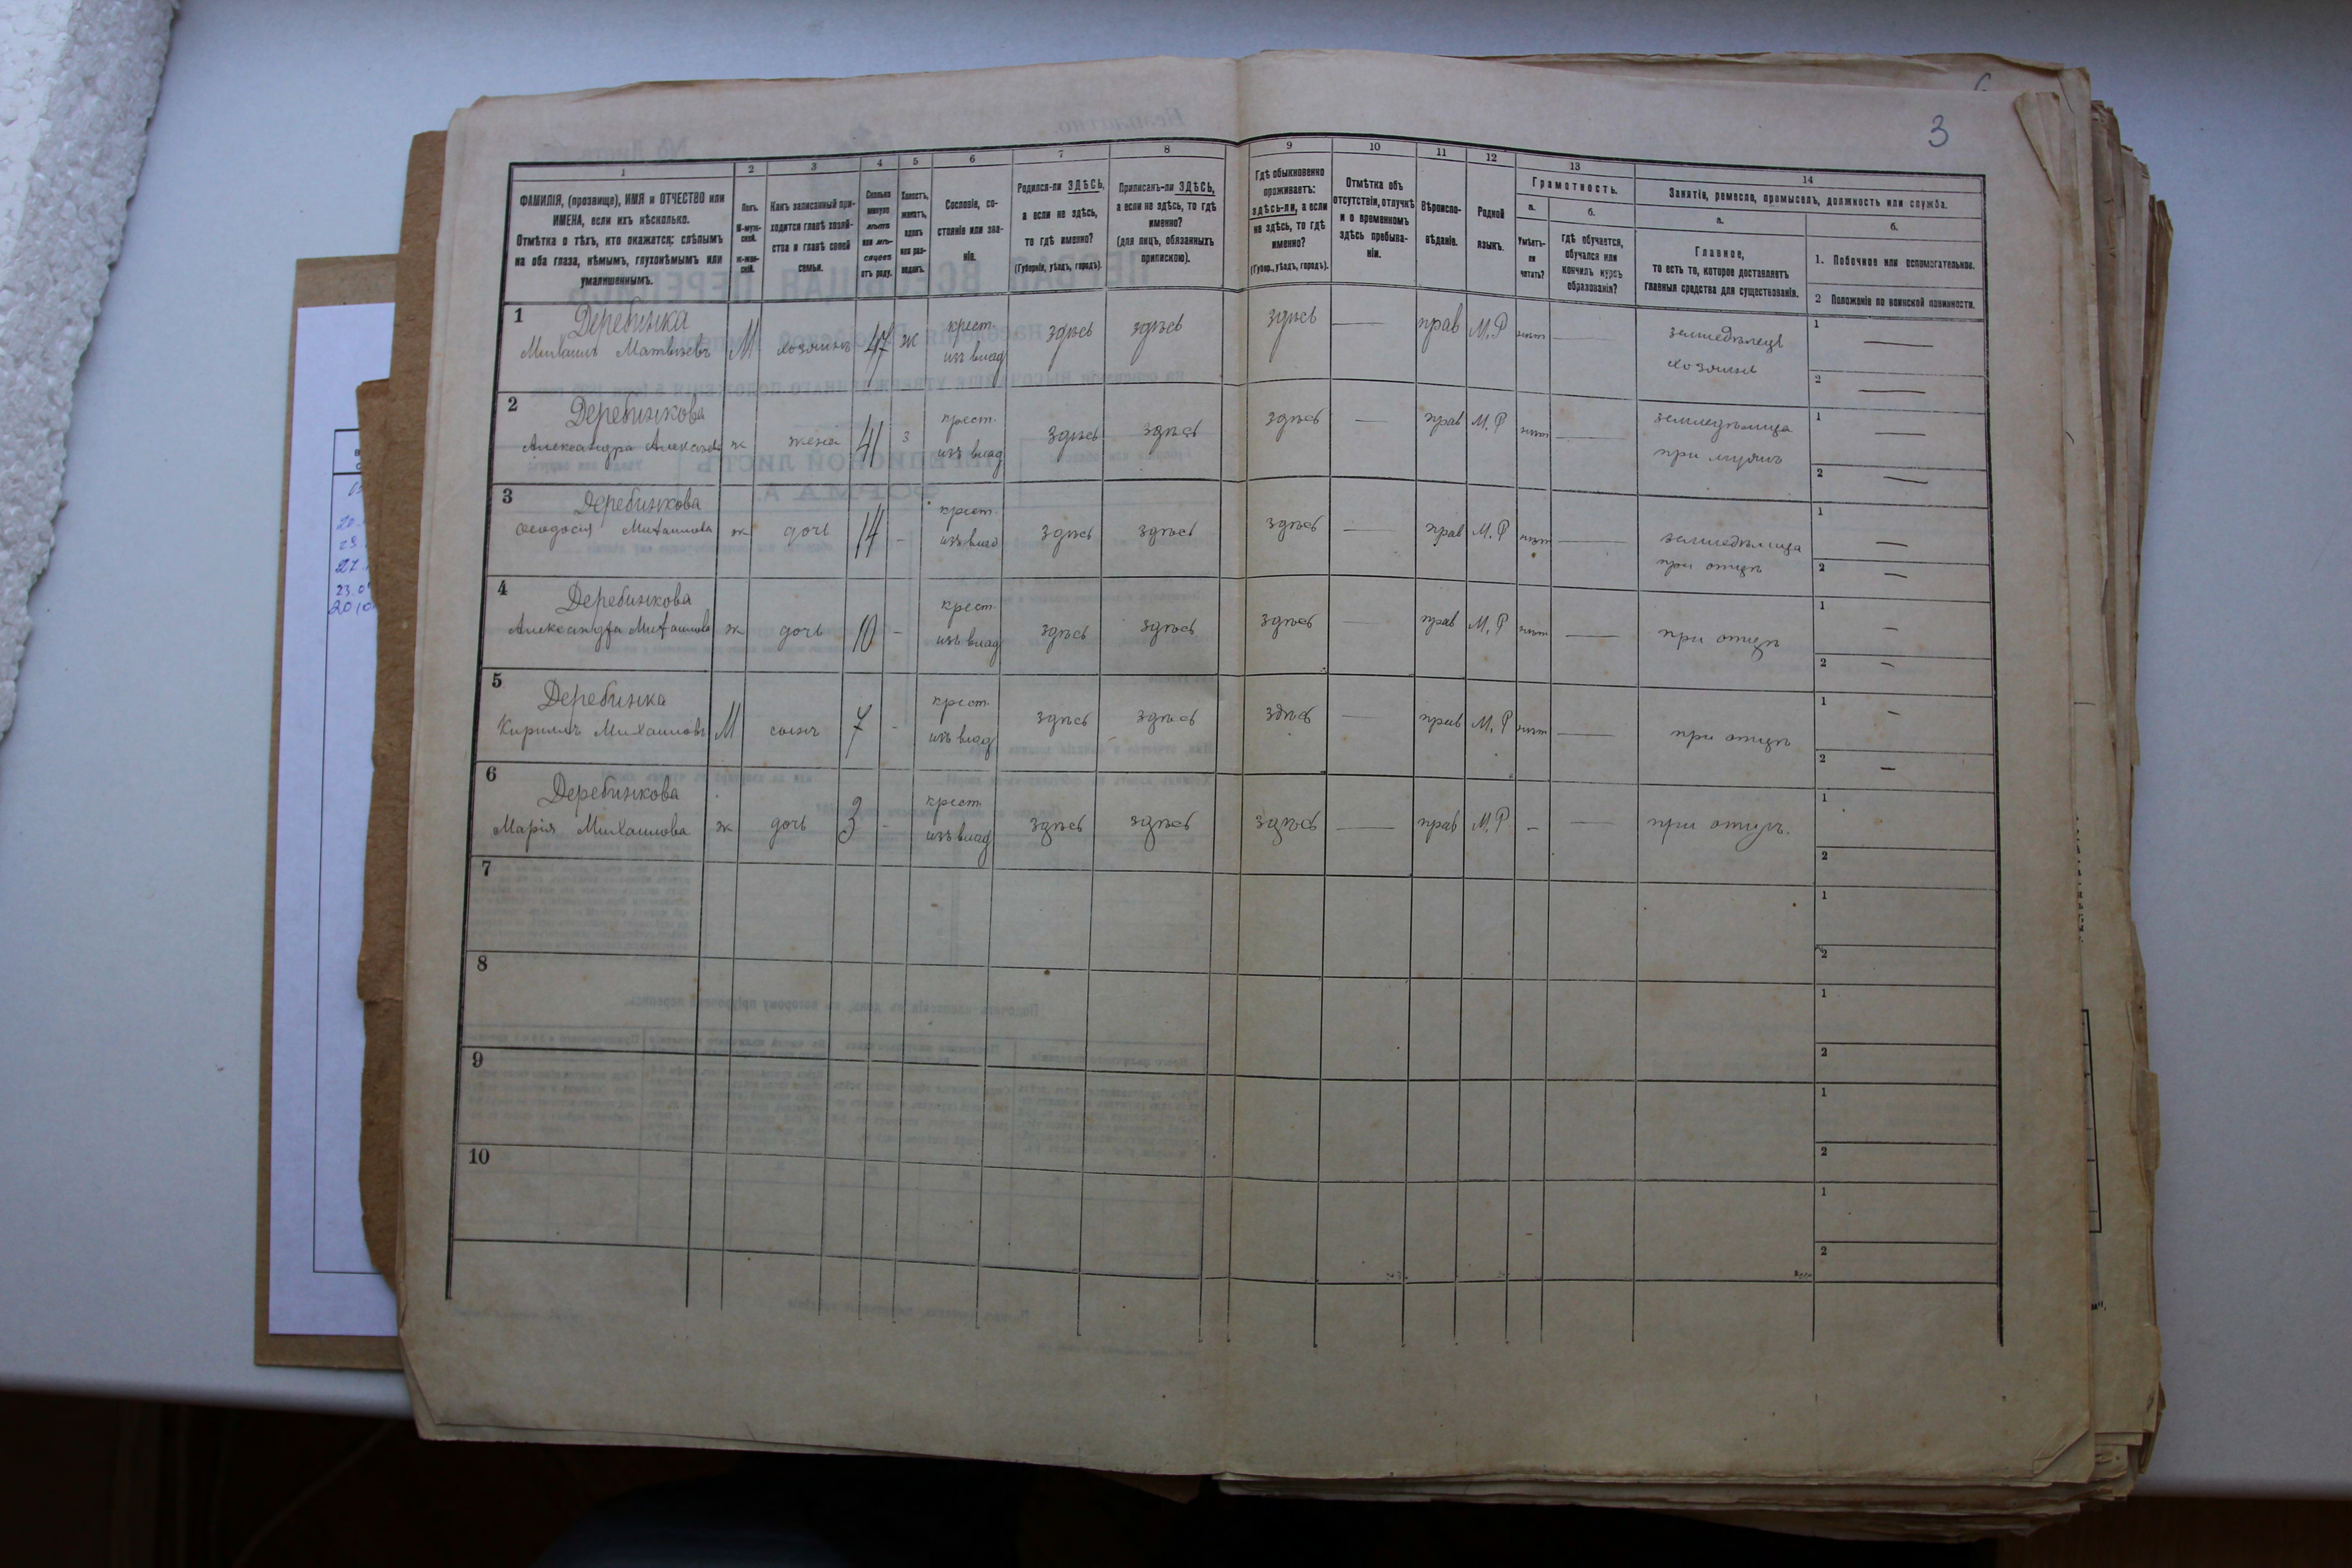 3
1 2 3 4 5 6 7 8 9 10 11 12 13 14
ФАМИЛІЯ, (прозвище), ИМЯ и ОТЧЕСТВО или ИМЕНА, если ихъ нѣсколько.
Отмѣтка о тѣхъ, кто окажется: слѣпымъ на оба глаза, нѣмымъ, глухонѣмымъ или умалишеннымъ.
Полъ.
М-муж-
ской.
Ж-жен-
скій.
Какъ записанный при-
ходится главѣ хозяй-
ства и главѣ своей
семьи.
Сколько
минуло
лѣтъ
или мѣ-
сяцевъ
отъ роду.
Холостъ,
женатъ,
вдовъ
или раз-
веденъ.
Сословіе, со-
стояніе или зва-
ніе.
Родился-ли ЗДѢСЬ,
а если не здѣсь,
то гдѣ именно?
(Губернія, уѣздъ, городъ).
Приписанъ-ли ЗДѢСЬ,
а если не здѣсь, то гдѣ
именно?
(для лицъ, обязанныхъ
припискою).
Гдѣ обыкновенно
проживаетъ:
здѣсь-ли, а если
не здѣсь, то гдѣ
именно?
(Губер., уѣздъ, городъ).
Отмѣтка объ
отсутствіи, отлучкѣ
и о временномъ
здѣсь пребыва-
ніи.
Вѣроиспо-
вѣданіе.
Родной
языкъ.
Грамотность.
а.
Умѣетъ-
ли
читать?
б.
Гдѣ обучается,
обучался или
кончилъ курсъ
образованія?
Занятіе, ремесло, промыселъ, должность или служба.
а.
Главное,
то есть то, которое доставляетъ
главныя средства для существованія.
б.
1. Побочное или вспомогательное.
2 Положеніе по воинской повинности.
1 Деребинка крест. земледѣлецъ 1 —
Михаилъ Матвѣевъ М хозяинъ 47 ж изъ влад здѣсь здѣсь здѣсь — прав М.Р нѣт — хозяинъ 2 —
2 Деребинкова крест. земледѣлица 1 —
Александра ж жена 41 з изъ влад здѣсь здѣсь здѣсь — прав М.Р нѣт — при мужѣ 2 —
3 Деребинкова крест. земледѣлица 1 —
Феодосія Михаилова ж дочь 14 - изъ влад здѣсь здѣсь здѣсь — прав М.Р нѣт — при отцѣ 2 —
4 Деребинкова крест. 1 —
Александра Михаилова ж дочь 10 - изъ влад здѣсь здѣсь здѣсь — прав М.Р нѣт — при отцѣ 2 —
5 Деребинка крест. 1 —
Кириллъ Михаиловъ М сынъ 7 - изъ влад здѣсь здѣсь здѣсь — прав М.Р нѣт — при отцѣ 2 —
6 Деребинкова крест. 1
Марія Михаилова ж дочь 3 - изъ влад здѣсь здѣсь здѣсь — прав М.Р - — при отцѣ. 2
7 1
2
8 1
2
9 1
2
10 1
2